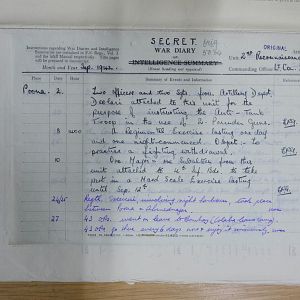 SECRET.
ORIGINAL
Instructions regarding War Diaries and Intelligence
Summaries are contained in F.S. Regs., Vol. I
and the Staff Manual respectively. Title pages
will be prepared in manuscript.
WAR DIARY
OR
INTELLIGENCE SUMMARY
(Erase heading not required)
Month and Year Sep. 1942
Unit 2nd Reconnaissance
Commanding Officer Lt. Co
Place Date Hour Summary of Events and Information
Poona 2. Two officers and two Sgts from Artillery Depot
Deolali attached to this unit for the
purpose of instructing the Anti-Tank
Troop in the use of 2 Pounder Guns.
8 A Regimental Exercise lasting one day
and one night commenced. Object: To
practise a fighting withdrawal.
10 One Major & one Subaltern from this
unit attached to 4th Bde to take
part in a Hard Scale Exercise lasting
until Sep.
24/25 Regtl. exercise involving night harbour, took place
between Poona & Ahmednagar
27 43 ors. went on leave to Bombay
43 ors. go there every 6 days now & enjoy it immensely.